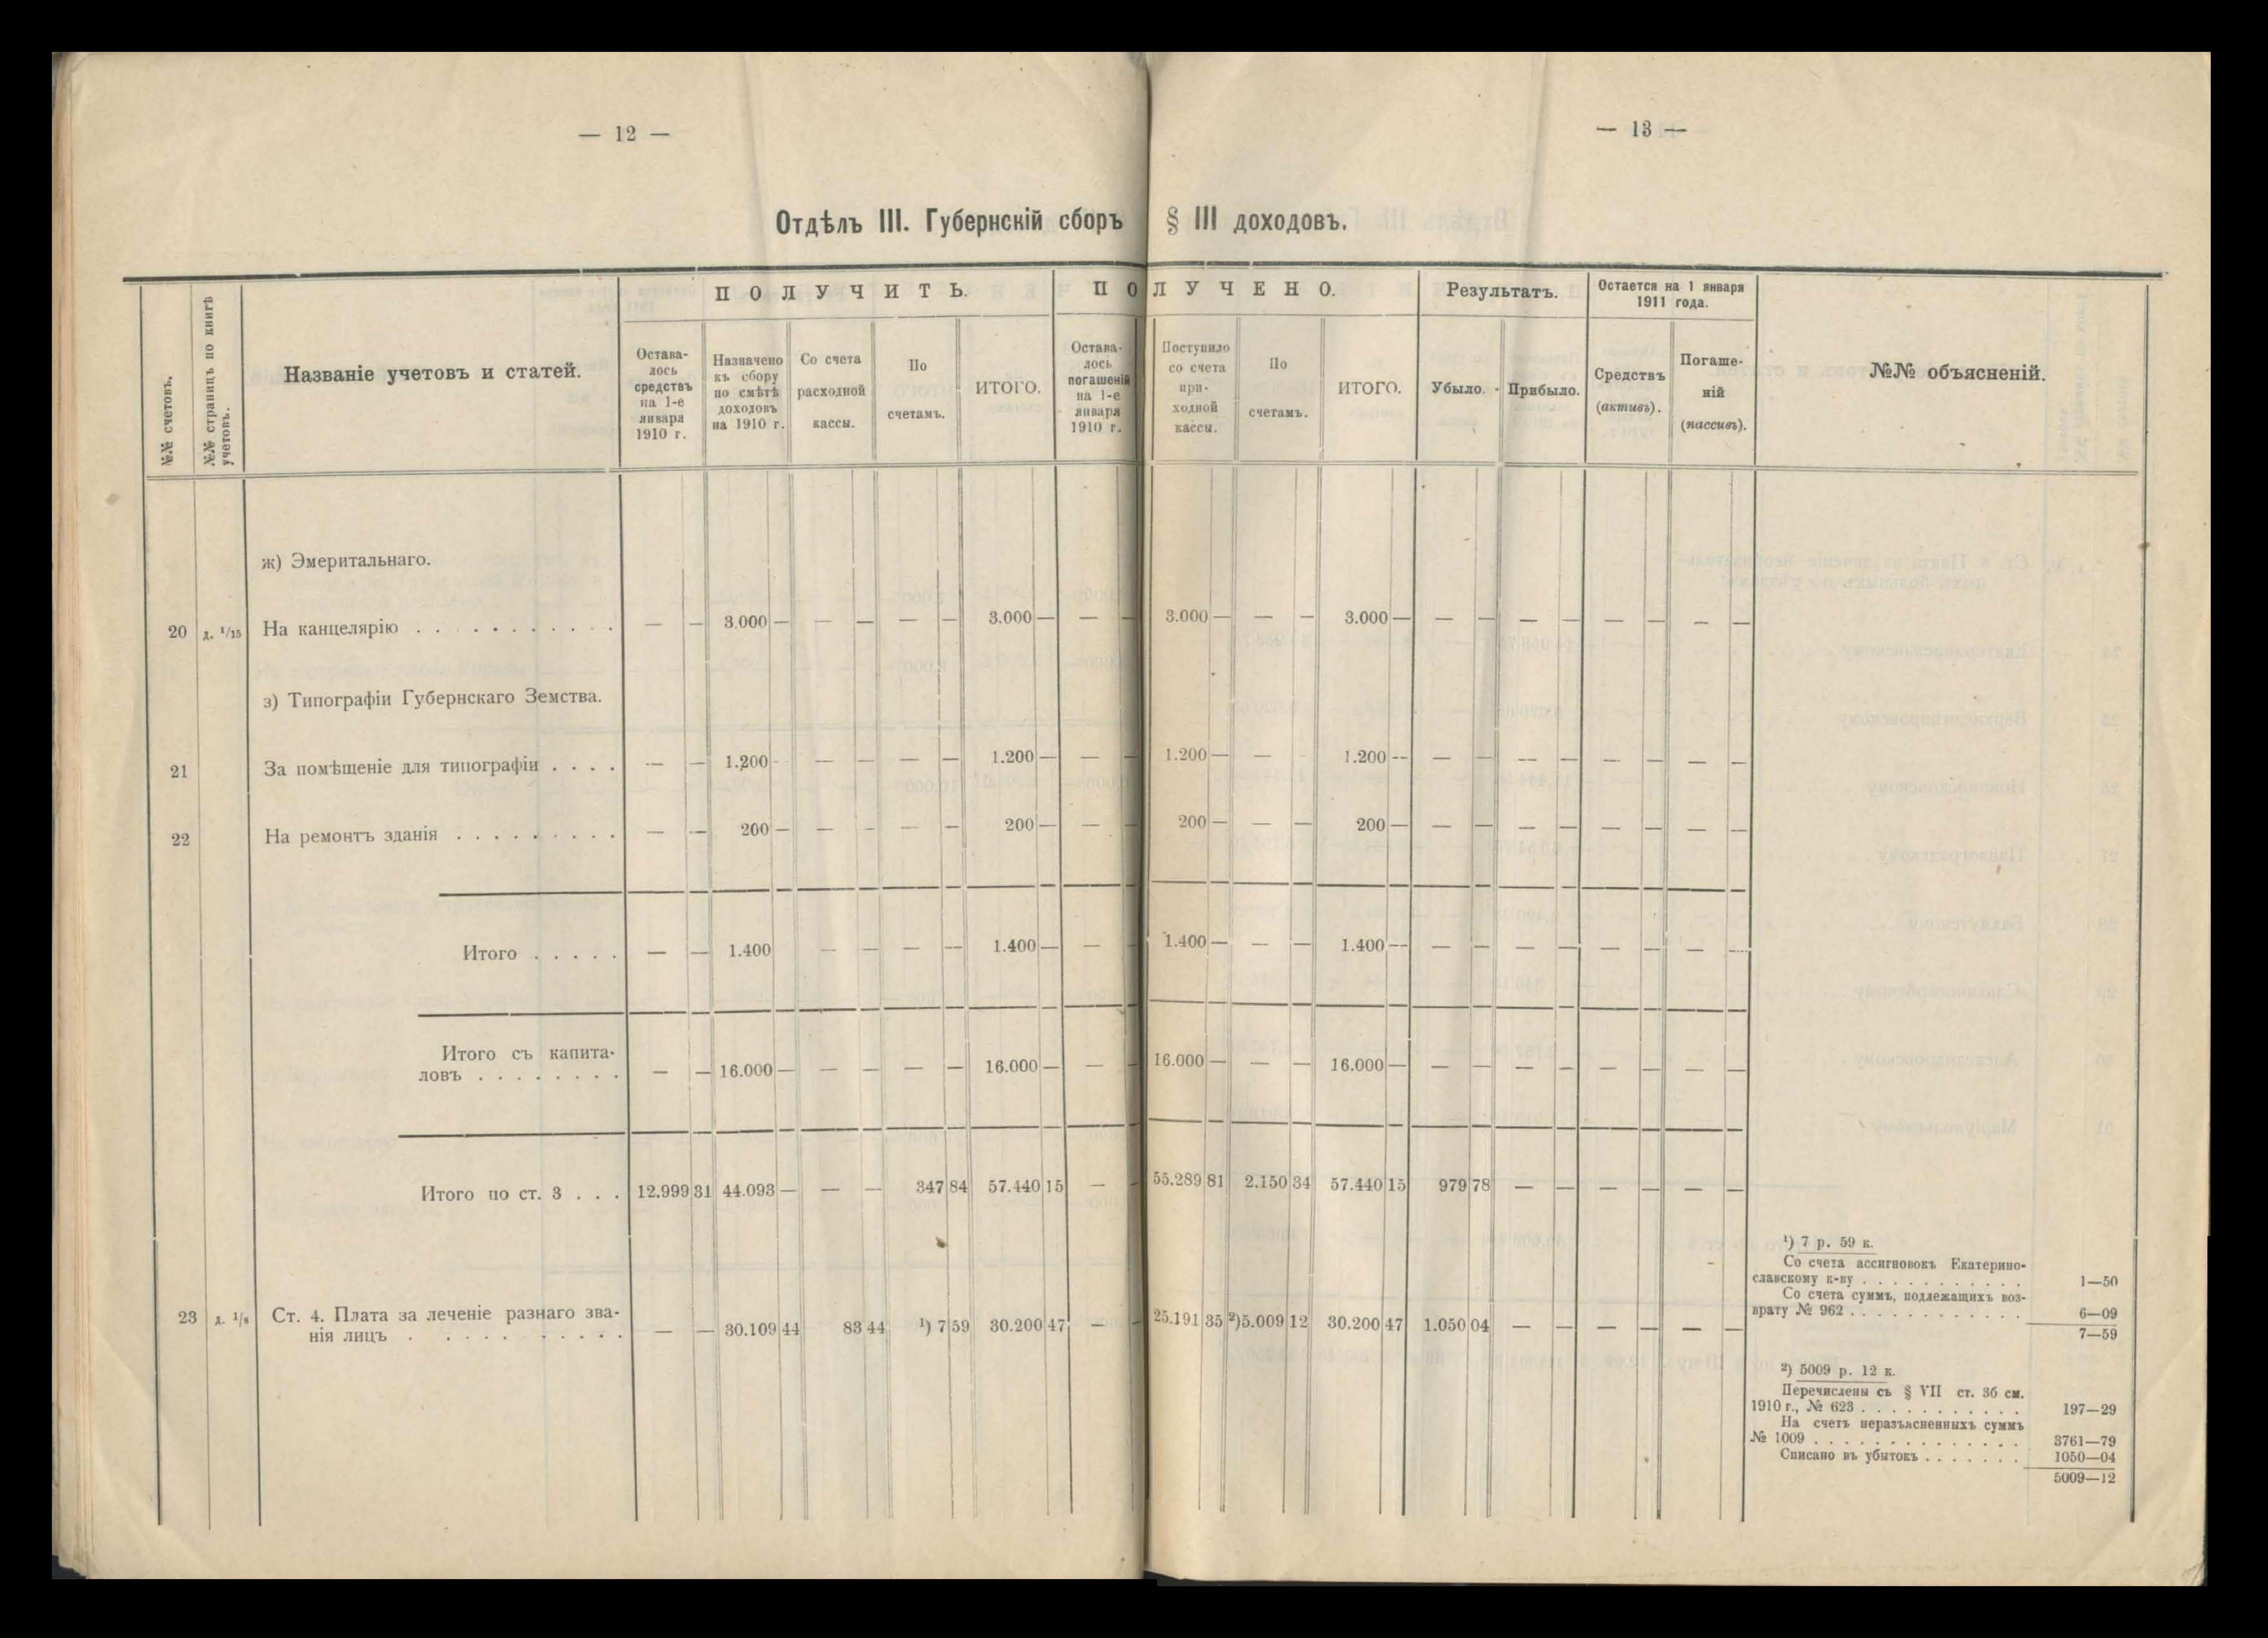 — 12 —
— 13 —
Отдѣлъ III. Губернскій сборъ § III доходовъ.
№№ счетовъ.
№№ страницъ по книгѣ учетовъ.
Названіе учетовъ и статей.
ПОЛУЧИТЬ.
Остава-
лось
средствъ
на 1-е
января
1910 г.
Назначено
къ сбору
по смѣтѣ
доходовъ
на 1910 г.
Со счета
расходной
кассы.
По
счетамъ.
ИТОГО.
ПОЛУЧЕНО.
Остава-
лось
погашеній
на 1-е
января
1910 г.
Поступило
со счета
при-
ходной
кассы.
По
счетамъ.
ИТОГО.
Результатъ.
Убыло.
Прибыло.
Остается на 1 января
1911 года.
Средствъ
(активъ).
Погаше-
ній
(пассивъ).
№№ объясненій.
ж) Эмеритальнаго.
20 д. 1/15 На канцелярію . . . . . . . . . . . — — 3.000 — — — — — 3.000 — — — 3.000 — — — 3.000 — — — — — — — — —
з) Типографіи Губернскаго Земства.
21 За помѣщеніе для типографіи . . . . — — 1.200 — — — — 1.200 — — — 1.200 — — 1.200 — — — — — — — — —
22 На ремонтъ зданія . . . . . . . . . — — 200 — — — — — 200 — — — 200 — — — 200 — — — — — — — — —
Итого . . . . . — — 1.400 — — — — 1.400 — — — 1.400 — — — 1.400 — — — — — — — — —
Итого съ капита-
ловъ . . . . . . . . — — 16.000 — — — — — 16.000 — — — 16.000 — — — 16.000 — — — — — — — — —
Итого по ст. 3 . . . 12.999 31 44.093 — — — 347 84 57.440 15 — — 55.289 81 2.150 34 57.440 15 979 78 — — — — — —
23 д. 1/8 Ст. 4. Плата за леченіе разнаго зва-
нія лицъ . . . . . . . . . . — — 30.109 44 83 44 ¹) 7 59 30.200 47 — — 25.191 35 ²) 5.009 12 30.200 47 1.050 04 — — — — — —
¹) 7 р. 59 к.
Со счета ассигновокъ Екатерино-
славскому к-ву . . . . . . . . . . . 1—50
Со счета суммъ, подлежащихъ воз-
врату № 962 . . . . . . . . . . . . 6—09
7—59
²) 5009 р. 12 к.
Перечислены съ § VII ст. 3б см.
1910 г., № 623 . . . . . . . . . . . 197—29
На счетъ неразъясненныхъ суммъ
№ 1009 . . . . . . . . . . . . . . 3761—79
Списано въ убытокъ . . . . . . . 1050—04
5009—12